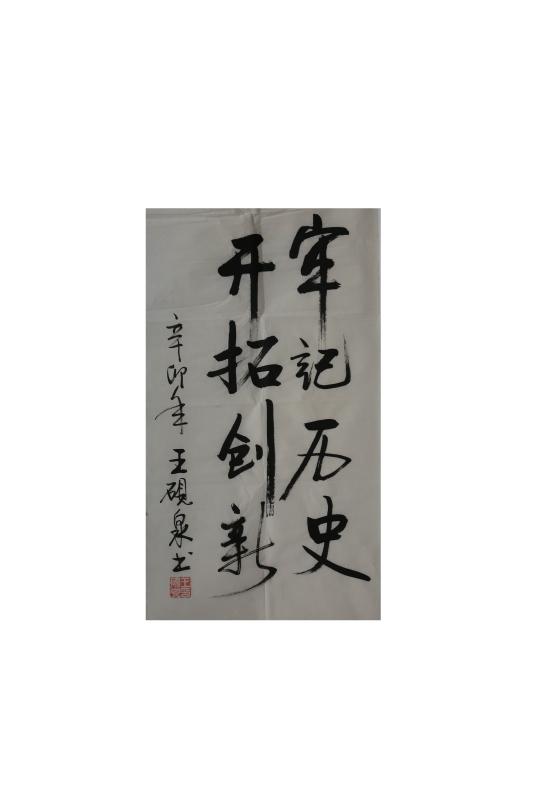 牢记历史
开拓创新
辛卯年 王砚泉书